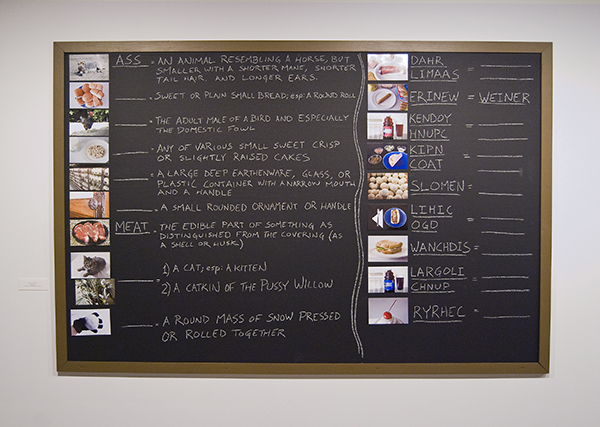 ASS = AN ANIMAL RESEMBLING A HORSE, BUT
SMALLER WITH A SHORTER MANE, SHORTER
TAIL HAIR, AND LONGER EARS.
= SWEET OR PLAIN SMALL BREAD; esp: A ROUND ROLL
= THE ADULT MALE OF A BIRD AND ESPECIALLY
THE DOMESTIC FOWL
= ANY OF VARIOUS SMALL SWEET CRISP
OR SLIGHTLY RAISED CAKES
= A LARGE DEEP EARTHENWARE, GLASS, OR
PLASTIC CONTAINER WITH A NARROW MOUTH
AND A HANDLE
= A SMALL ROUNDED ORNAMENT OR HANDLE
MEAT = THE EDIBLE PART OF SOMETHING AS
DISTINGUISHED FROM THE COVERING (AS
A SHELL OR HUSK)
1) A CAT; esp: A KITTEN
2) A CATKIN OF THE PUSSY WILLOW
= A ROUND MASS OF SNOW PRESSED
OR ROLLED TOGETHER
DAHR =
LIMAAS
ERINEW = WEINER
KENDOY =
HNUPC
KIPN =
COAT
SLOMEN =
LIHIC =
OGD
WANCHDIS =
LARGOLI =
CHNUP
RYRHEC =